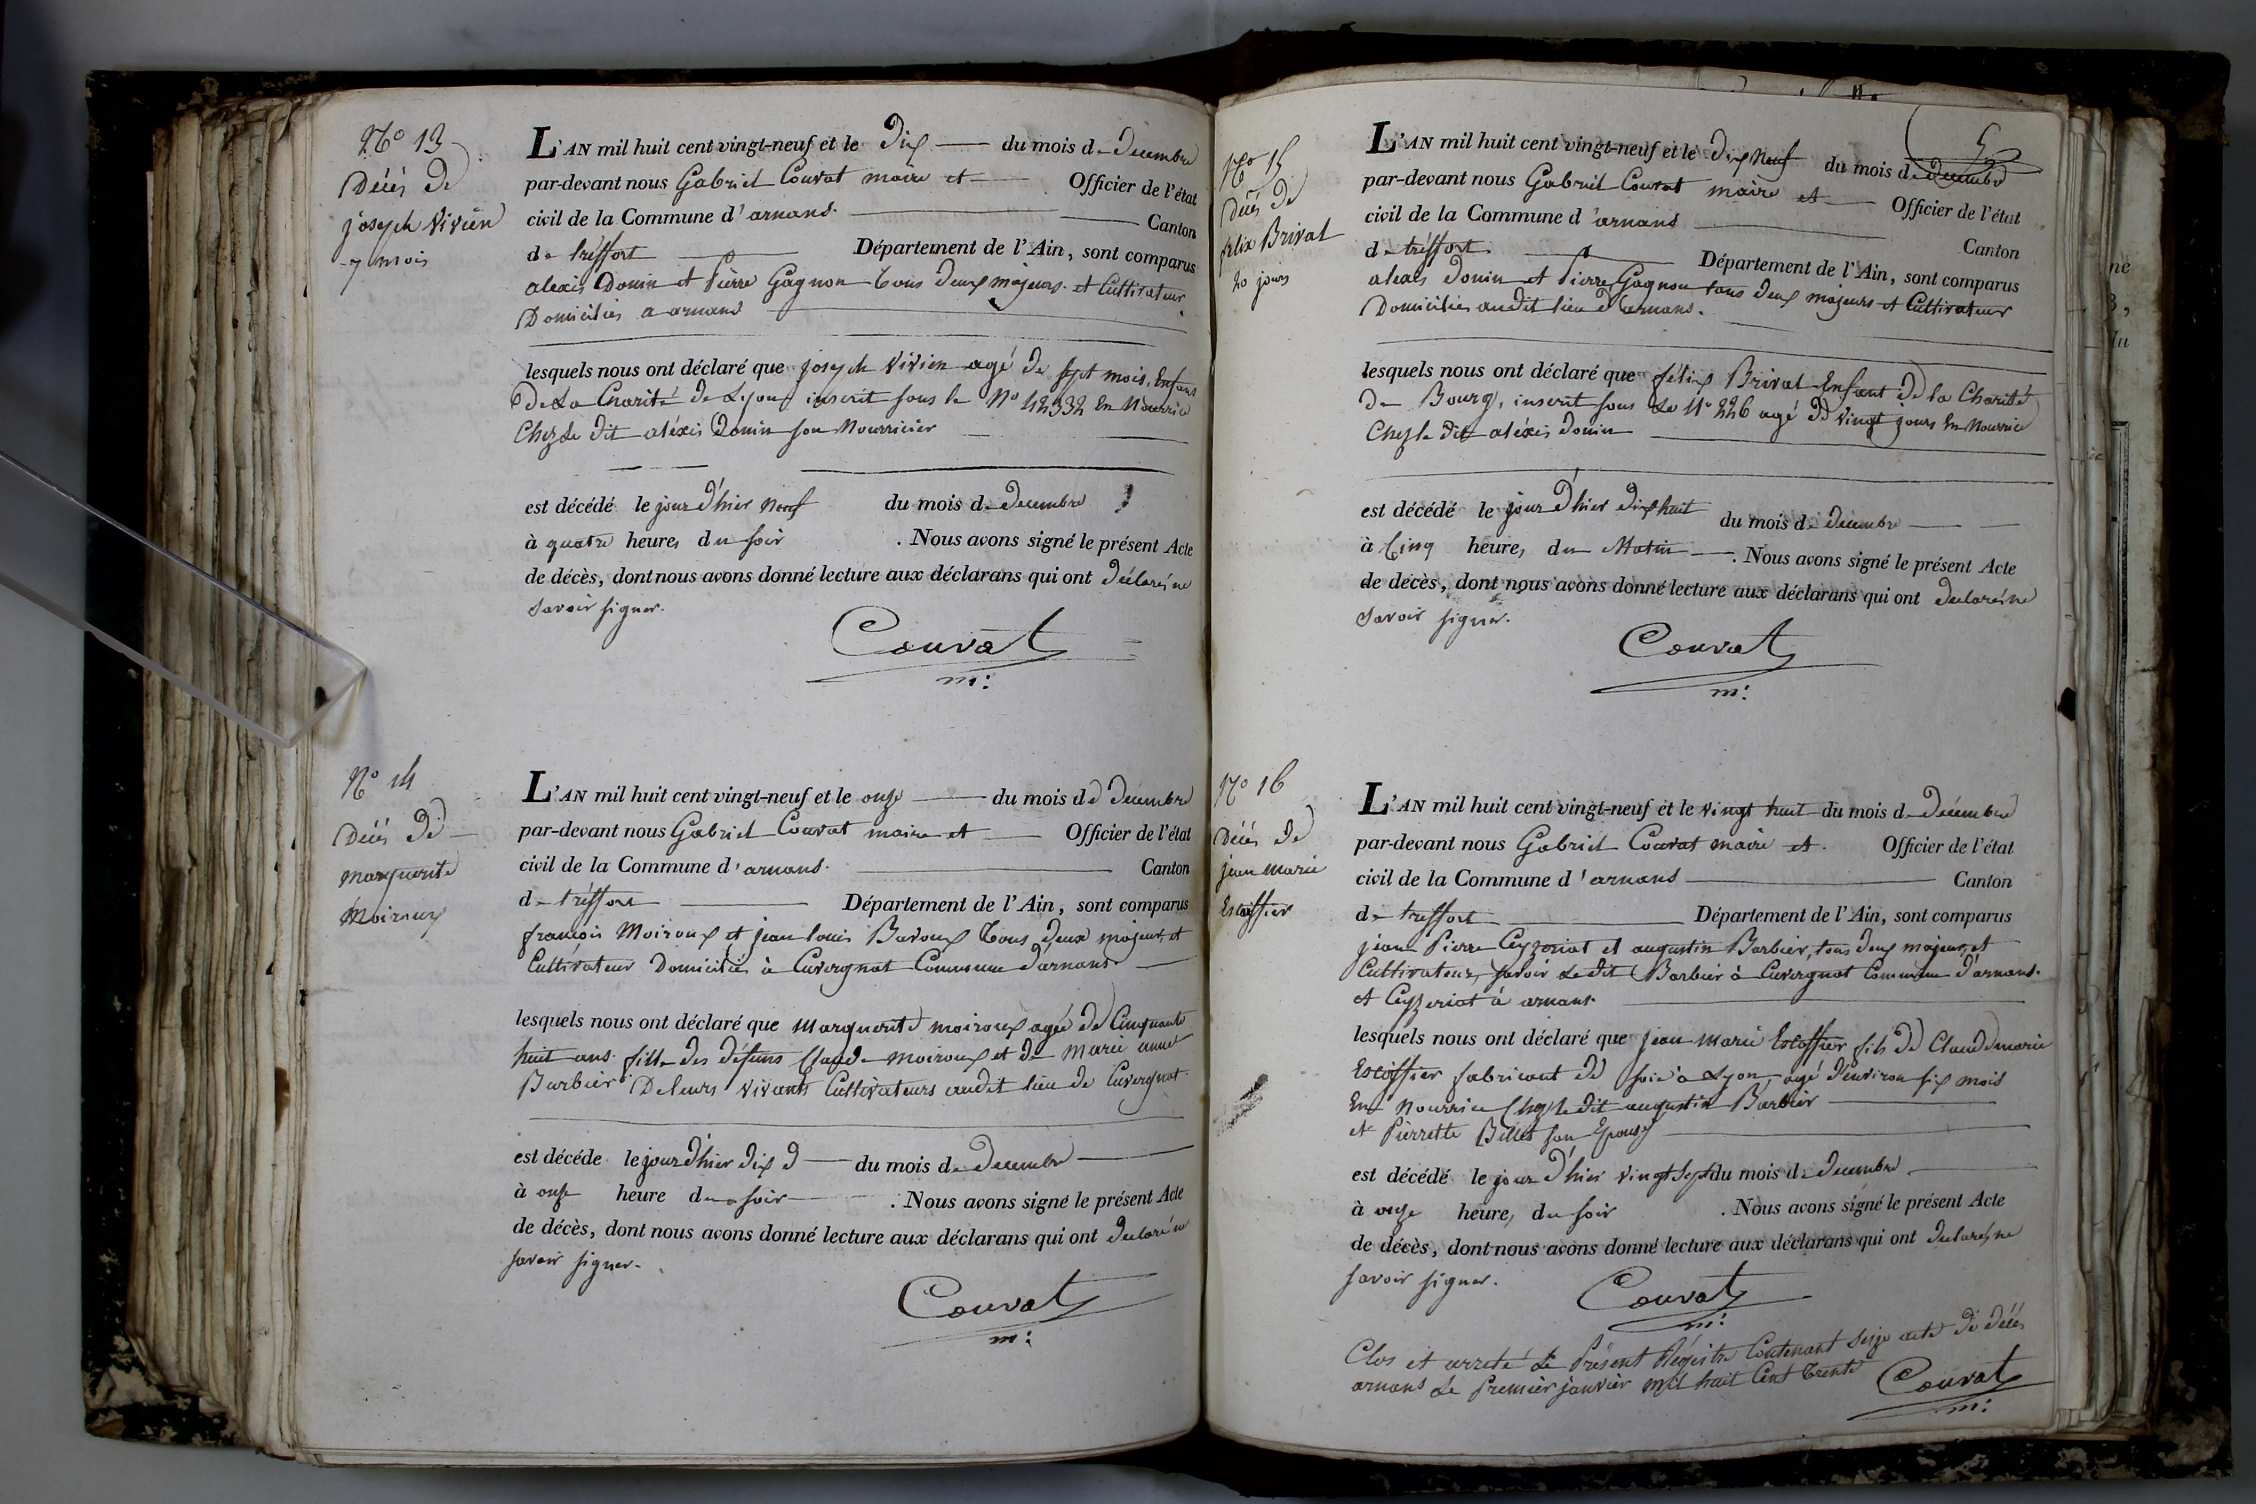 N° 13
Décès de
joseph Vivien
7 mois
L'AN mil huit cent vingt-neuf et le Dix du mois d. Decembre
par-devant nous Gabriel Couvat maire et Officier de l'état
civil de la Commune d'arnans. Canton
de tréffort Département de l'Ain, sont comparus
alexis Donin et Pierre Gagnon tous Deux majeurs et Cultivateur
Domiciliés a arnans
lesquels nous ont déclaré que joseph Vivien agé de sept mois, Enfans
De La Charité de Lyon, inscrit sous le N° 42332 En Nourrice
Chez le dit aléxis Donin son Nourricier
est décédé le jour d'hier Neuf du mois de Decembre
à quatre heures du soir . Nous avons signé le présent Acte
de décès, dont nous avons donné lecture aux déclarans qui ont déclaré ne
savoir signer.
Couvat
m:
N° 14
Décès de
marguerite
Moiroux
L'AN mil huit cent vingt-neuf et le onze du mois de Decembre
par-devant nous Gabriel Couvat maire et Officier de l'état
civil de la Commune d'arnans. Canton
de tréffort Département de l'Ain, sont comparus
françois Moiroux et jean louis Bavoux tous deux majeurs et
Cultivateur Domiciliés à Cuvergnat Commune d'arnans
lesquels nous ont déclaré que marguerite moiroux agée de Cinquante
huit ans fille des défunts Claude moiroux et de Marie anne
Barbier De leurs vivants Cultivateurs audit lieu de Cuvergnat.
est décédé le jour d'hier dix d du mois de Decembre
à onze heure du soir . Nous avons signé le présent Acte
de décès, dont nous avons donné lecture aux déclarans qui ont declaré ne
savoir signer.
Couvat
m:
N° 15
Décès de
félix Brival
20 jours
L'AN mil huit cent vingt-neuf et le dix neuf du mois de decembre
par-devant nous Gabriel Couvat maire et Officier de l'état
civil de la Commune d'arnans Canton
de tréffort Département de l'Ain, sont comparus
alexis Donin et Pierre Gagnon tous deux majeurs et Cultivateur
Domiciliés audit lieu d'arnans.
lesquels nous ont déclaré que félix Brival Enfant de la Charité
De Bourg, inscrit sous Le N° 226 agé de vingt jours En Nourrice
Chez le dit aléxis Donin
est décédé le jour d'hier dix huit du mois de décembre
à Cinq heure, du Matin . Nous avons signé le présent Acte
de décès, dont nous avons donné lecture aux déclarans qui ont declaré ne
savoir signer.
Couvat
m:
N° 16
Décès de
jean marie
Escoffier
L'AN mil huit cent vingt-neuf et le vingt huit du mois de décembre
par-devant nous Gabriel Couvat maire et. Officier de l'état
civil de la Commune d'arnans Canton
de treffort Département de l'Ain, sont comparus
jean Pierre Ceyzeriat et augustin Barbier, tous deux majeur, et
Cultivateurs, savoir Le dit Barbier à Cuvergnat Commune d'arnans.
et Ceyzeriat à arnans.
lesquels nous ont déclaré que jean marie Escoffier fils de Claude marie
Escoffier fabricant de soie à Lyon, agé d'environ six mois
En Nourrice Chez le dit augustin Barbier
et Pierrette Billet son Epouse
est décédé le jour d'hier vingt sept du mois de decembre
à onze heure, du soir . Nous avons signé le présent Acte
de décès, dont nous avons donné lecture aux déclarans qui ont declaré ne
savoir signer.
Couvat
m:
Clos et arreté Le Présent Régistre Contenant seize acte de décès
arnans Le Premier janvier mil huit Cent trente
Couvat
m: